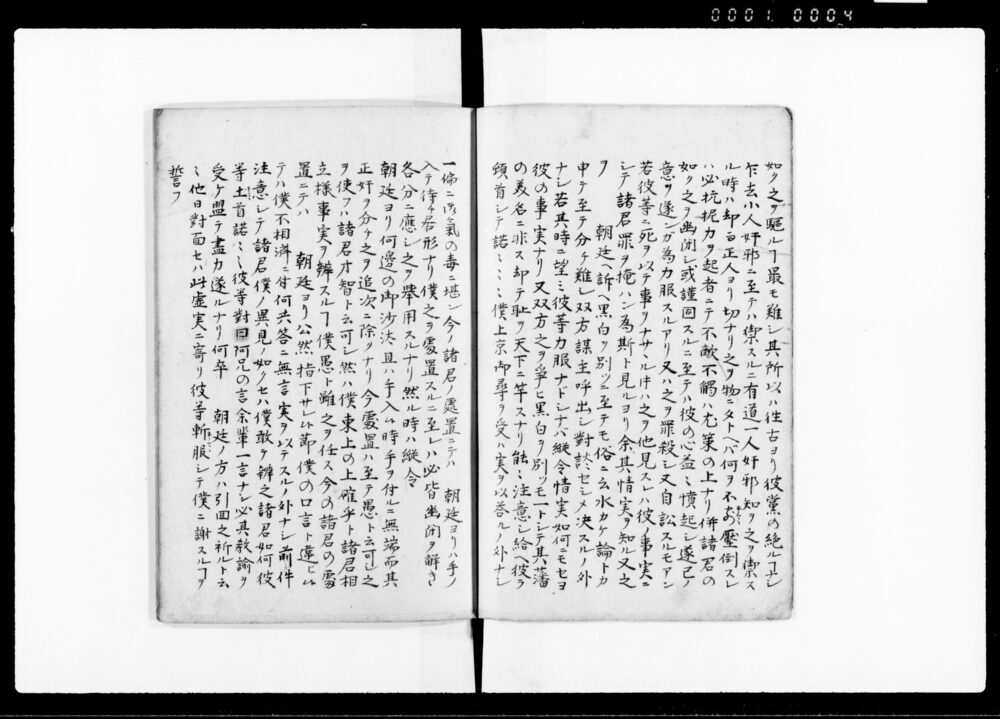 0001 0004
如ク之ヲ驅ルヿ最モ難シ其所以ハ往古ヨリ彼黨の絶ルヿナシ
乍去小人奸邪ニ至テハ禦スルニ有道一人奸邪知ラ之ヲ禦ス
ル時ハ却テ正人ヨリ切ナリ之ヲ物ニタトヘバ何ヲ不為壓倒スレ
ハ必抗抳力ヲ起者ニテ不敵不觸ハ尤策の上ナリ併諸君の
如ク之ヲ幽閉シ或謹固スルニ至テハ彼の心益〻憤起シ遂己ノ
意ヲ遂ンガ為力服スルアリ又ハ之ヲ罪殺シ又自訟スルモアン
若彼等ニ死ヲ以テ事ヲナサヽル片ハ之ヲ他見スレハ彼ノ事実ニ
シテ諸君罪ヲ掩ハン為斯ト見ルヨリ余其情実ヲ知ル又之
ヲ 朝廷ヘ訴ヘ黒白ヲ別ツニ至テモ俗ニ云水カケ論トカ
申テ至テ分チ難シ双方謀主呼出シ對談セシメ決スルノ外
ナシ若其時ニ望ミ彼等力服ナドシナバ縦令情実如何ニモセヨ
彼の事実ナリ又双方之ヲ爭ヒ黒白ヲ別ツモ一トシテ其藩
の美名ニ非ス却テ耻ヲ天下ニ竿スナリ能〻注意シ給ヘ彼ラ
頓首シテ諾〻〻僕上京御尋ヲ受ハ実ヲ以荅ルノ外ナシ
一倫ニ浮氣の毒ニ堪ン今ノ諸君ノ處置ニテハ 朝廷ヨリハ手ノ
入テ待チ居形ナリ僕之ヲ處置スルニ至レハ必皆幽閉ヲ解き
各分ニ應シ之ヲ擧用スルナリ然ル時ハ縦令
朝廷ヨリ何邊の御沙汰且ハ手入レ時手ヲ付ルニ無端而其
正奸ヲ分チ之ヲ追次ニ除クナリ今處置ハ至テ愚ト云可シ之
ヲ使フハ諸君才智ト云可シ然ハ僕東上の上確乎ト諸君相
立様事実ヲ辨スルヿ僕愚ト雖之ヲ任ス今の諸君の處
置ニテハ 朝廷ヨリ公然指下サレ節僕の口言ト違ヒ
テハ僕不相濟ニ付何共答ニ無言実ヲ以テスルノ外ナシ前件
注意シテ諸君僕ノ異見ノ如クセハ僕敢テ辨之諸君如何彼
等土首諾〻〻彼等對曰阿兄の言余輩一言ナシ必其教諭ヲ
受ケ盟テ盡力遂ルナリ何卒 朝廷ノ方ハ引回之祈ルト云
〻他日對面セハ此虚実ニ寄リ彼等斬服シテ僕ニ謝スルヿヲ
誓フ